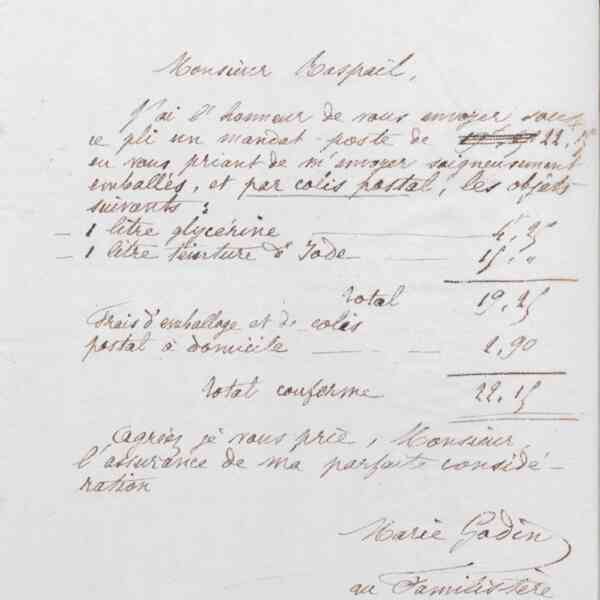 Monsieur Raspail,
J'ai l'honneur de vous envoyer sous
ce pli un mandat-poste de 22,15
en vous priant de m'envoyer soigneusement
emballés, et par colis postal, les objets
suivants :
— 1 litre glycérine 4,25
— 1 litre teinture d'Iode — 15, "
Total 19,25
Frais d'emballage et de colis
postal à domicile — — 2,90
Total conforme 22.15
Agréez je vous prie, Monsieur,
l'assurance de ma parfaite considé-
ration
Marie Godin
au Familistère